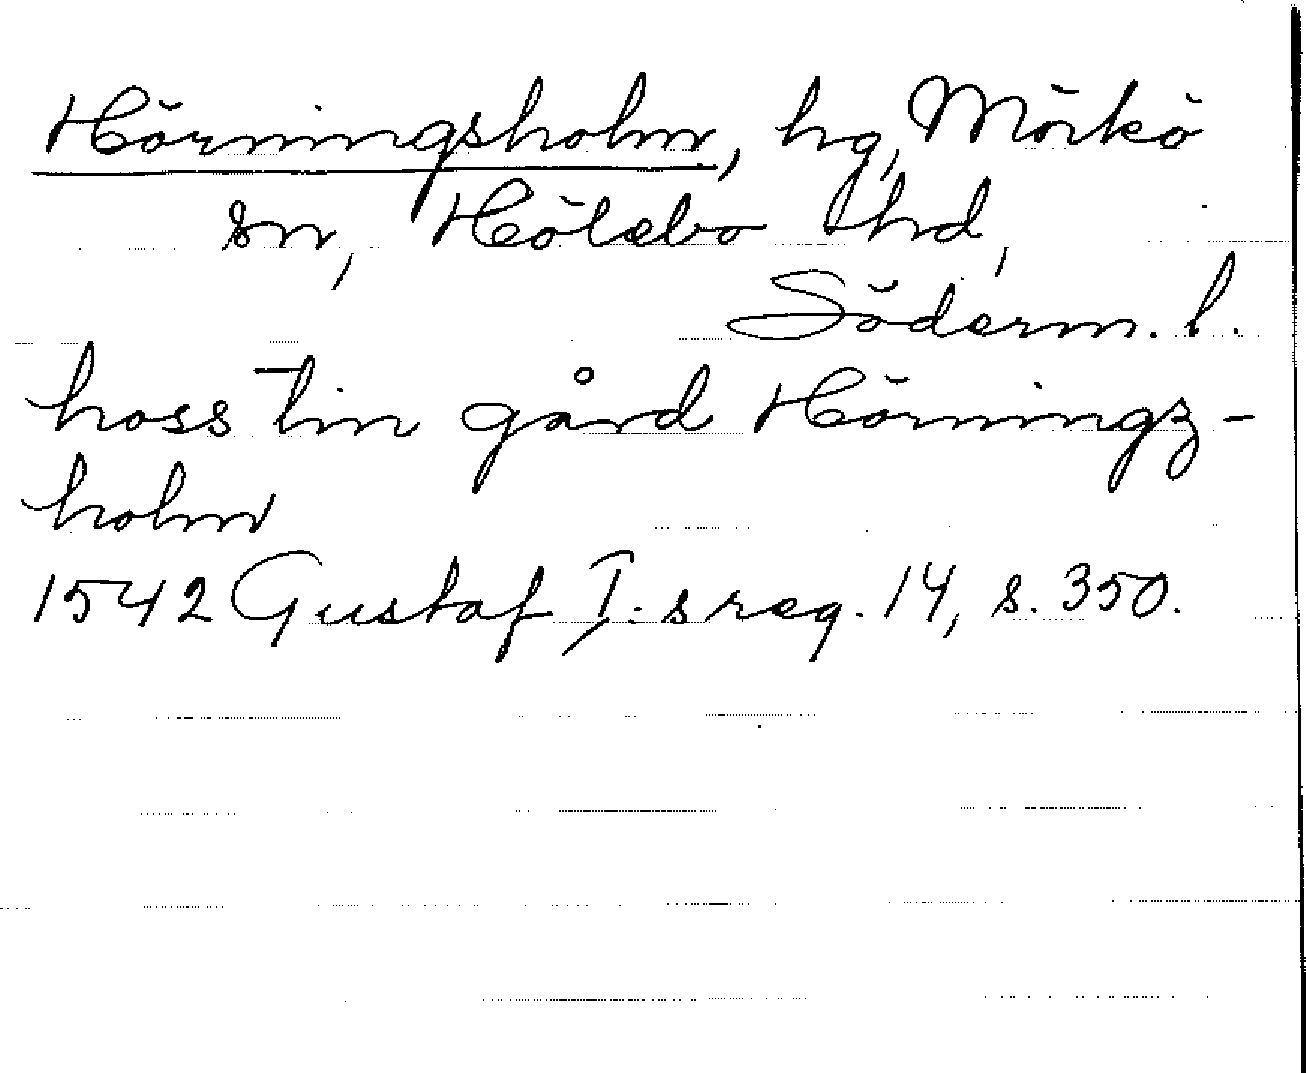 Hörningsholm, hg, Mörkö
sn, Hölebo hd,
Söderm. l.
hoss tin gård Hörningz-
holm
1542 Gustaf I:s reg. 14, s. 350.